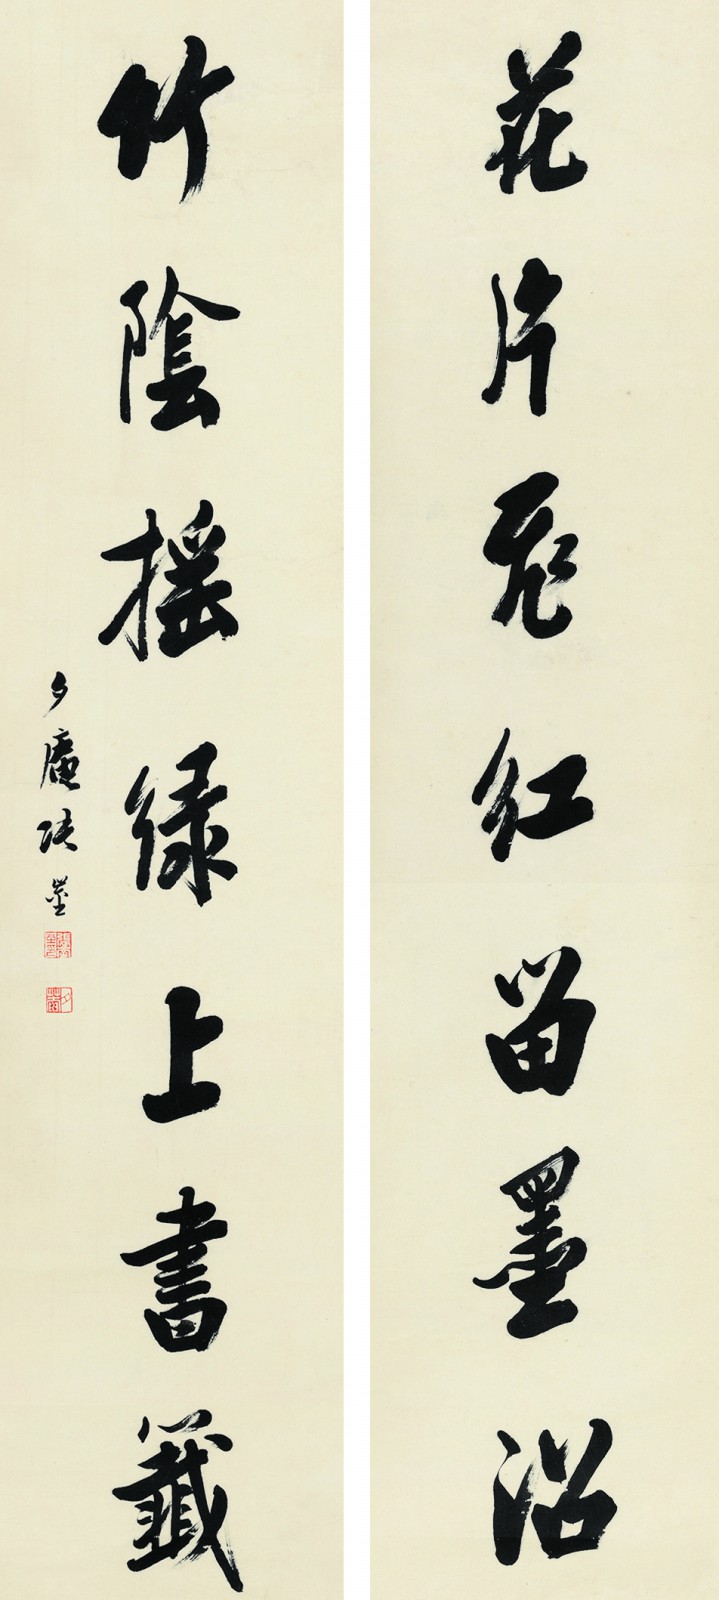 花片飛紅留墨沼
竹陰搖綠上書籤
夕庵張崟